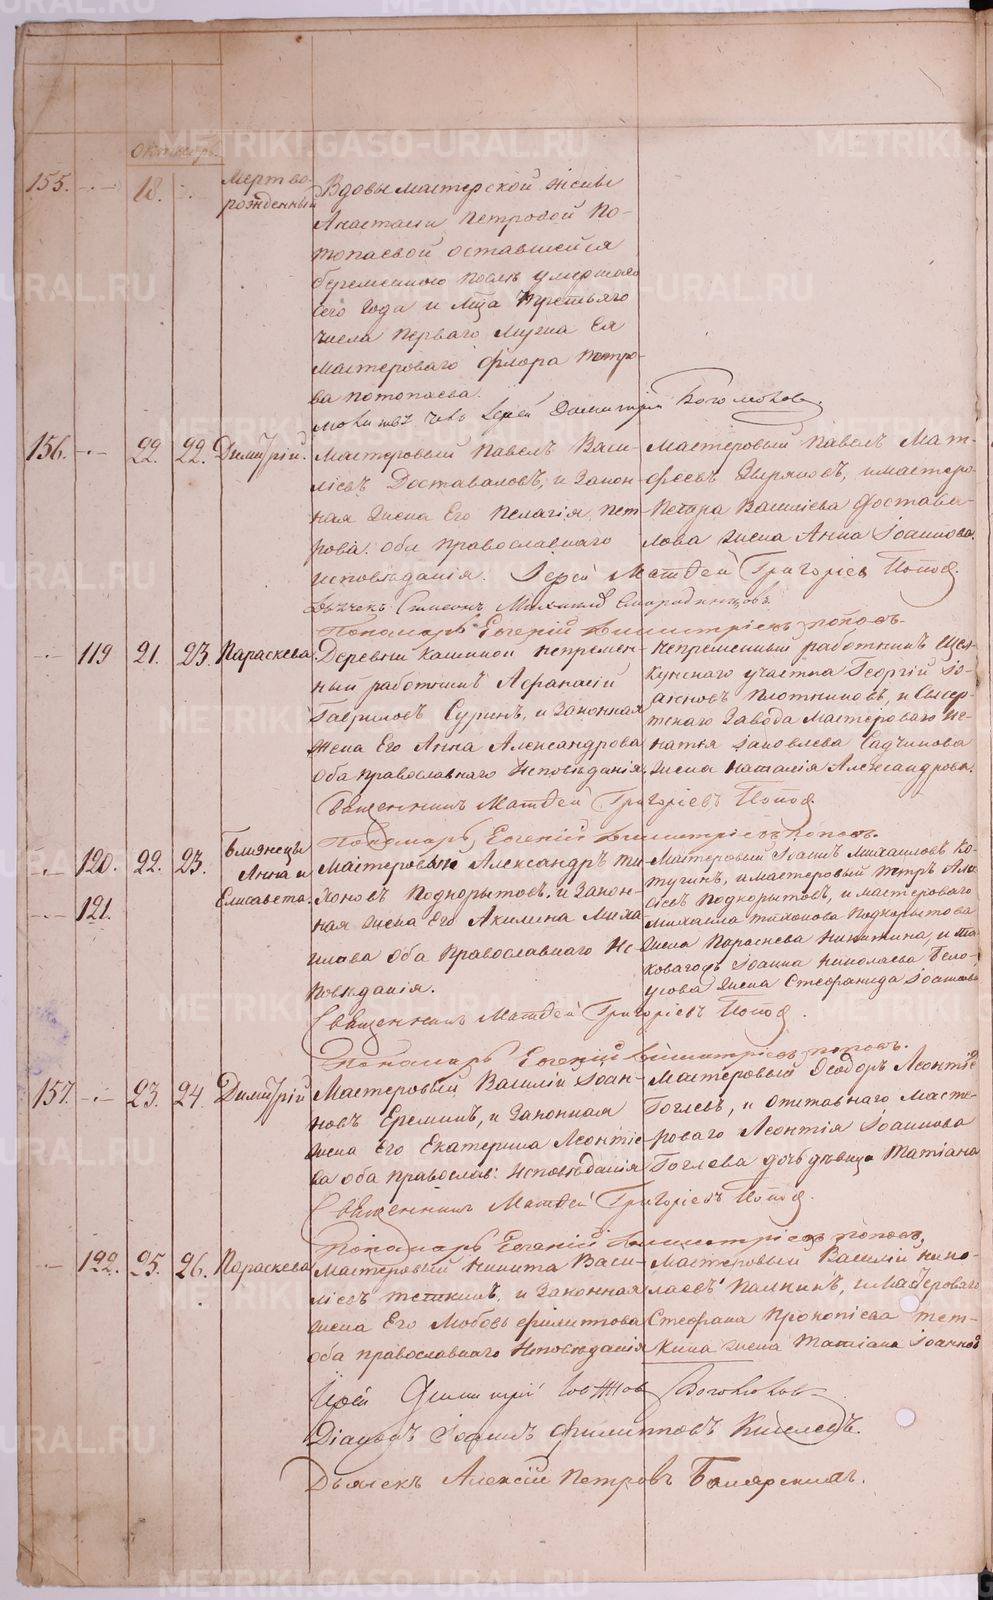 октябрь
155. -"- 18. -"- Мертво-
рожденный
Вдовы мастерской жены
Анастасии Петровой По-
топаевой оставшейся
беременною послѣ умершаго
сего года и мца третьяго
числа перваго мужа Ея
мастероваго Флора Петро-
ва Потопаева.
Іерей Димитрій Боголюбов.
156. -"- 22. 22. Димитрій.
Мастеровый Павелъ Васи-
ліевъ Доставаловъ, и Закон-
ная жена Его Пелагія Пет-
рова: оба православнаго
исповѣданія.
Мастеровый Павелъ Мат-
фѣевъ Зыряновъ, и мастеро-
Петра Василіева Достава-
лова жена Анна Іоаннова.
Іерей Матѳей Григоріев Попов.
Дьячек Симеон Михаилов Смородинцовъ
Пономарь Евгеній Димитріевъ Поповъ.
-"- 119 21. 23. Параскева.
Деревни Кашиной непремен-
ный работникъ Афанасій
Гавриловъ Суринъ, и Законная
жена Его Анна Александрова
оба православнаго исповѣданія.
Непременный работникъ Щел-
кунскаго участка Георгій Іо-
анновъ Плотниковъ, и Сысерт-
скаго Завода мастероваго Иг-
натія Іаковлева Садчикова
жена Наталія Александрова.
Священникъ Матѳей Григоріевъ Попов
Пономарь Евгеній Димитріевъ Поповъ.
-"- 120. 22. 23. Близнецы
Анна и
-"- 121. Елисавета.
Мастеровый Александръ Ти-
хоновъ Подкорытовъ, и Закон-
ная жена Его Акилина Миха-
илова оба Православнаго Ис-
повѣданія.
Мастеровый Іоаннъ Михаиловъ Ко-
тугинъ, и мастеровый Петръ Але-
ксѣевъ Подкорытовъ, и мастероваго
Михаила Тихонова Подкорытова
жена Параскева Никитина, и та-
ковагожъ Іоанна Николаева Бело-
усова жена Стефанида Іоаннова
Священникъ Матѳей Григоріевъ Попов.
Пономарь Евгеній Димитріевъ Поповъ.
157. -"- 23. 24. Димитрій
Мастеровый Василій Іоан-
новъ Ереминъ, и Законная
жена Его Екатерина Леонтіе-
ва оба православ: исповѣданія
Мастеровый Ѳеодоръ Леонтіев
Гоглевъ, и отставнаго масте-
роваго Леонтія Іоаннова
Гоглева дочь девица Татіана
Священникъ Матѳей Григоріевъ Попов.
Пономарь Евгеній Димитріевъ Поповъ,
-"- 122. 25. 26. Параскева
Мастеровый Никита Васи-
ліевъ Теткинъ, и Законная
жена Его Любовь Филиппова
оба православнаго Исповѣданія
Мастеровый Василій Нико-
лаевъ Палкинъ, и Мастероваго
Стефана Прокопіева Тет-
кина жена Татіана Іоаннова
Іерей Димитрій Боголюбов
Діаконъ Іоаннъ Филипповъ Киселевъ.
Дьячекъ Алексій Петровъ